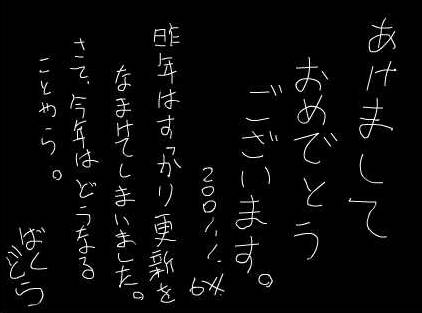 あけまして
おめでとう
ございます。
昨年はすっかり更新を
なまけてしまいました。
さて、今年はどうなる
ことやら。